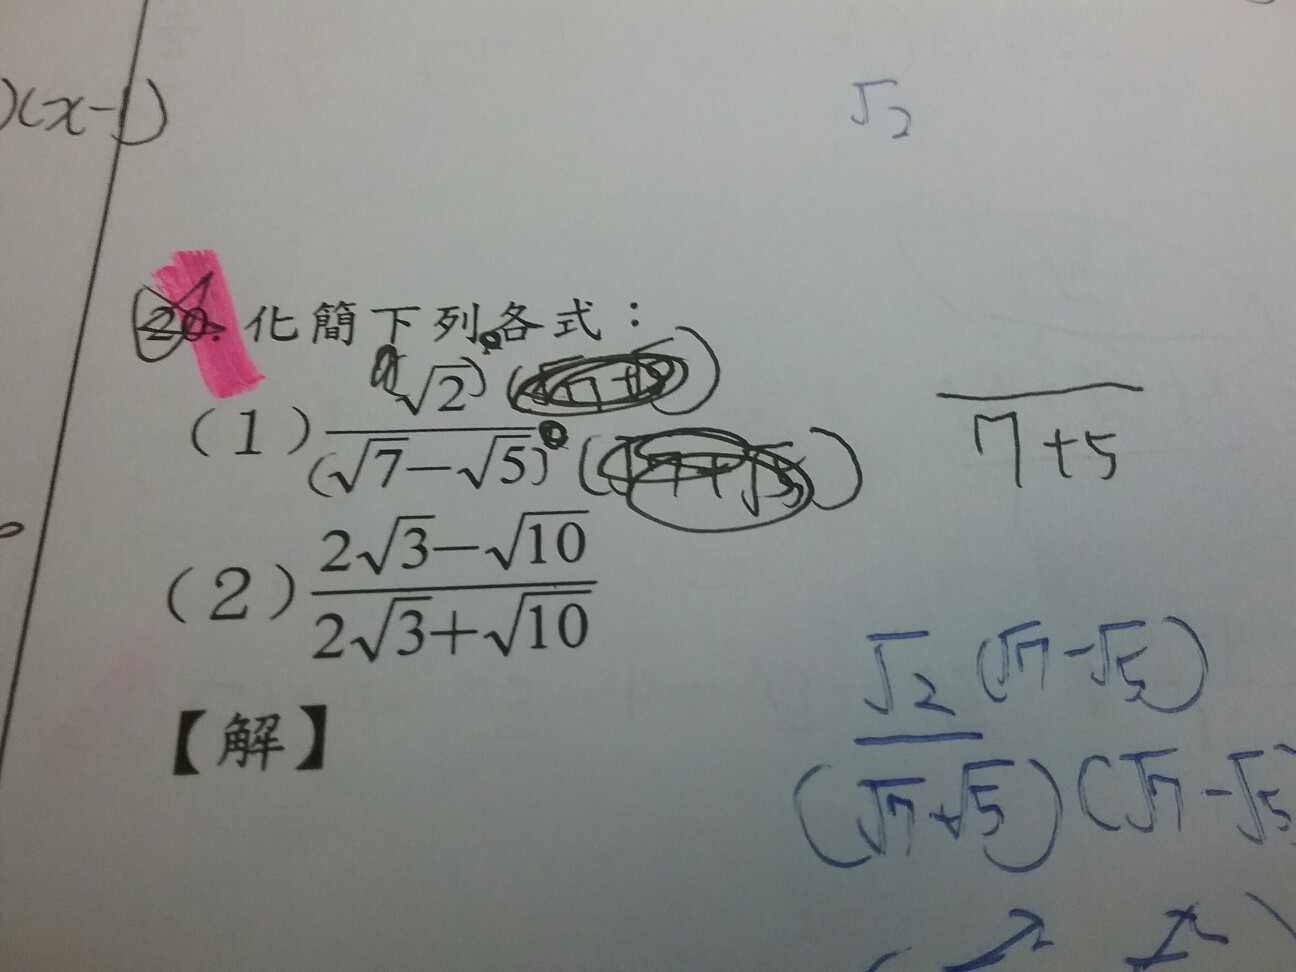 )(x-1)
√2
20. 化簡下列各式：
(1) (√2) / (√7-√5)
7+5
(2) (2√3-√10) / (2√3+√10)
√2 (√7-√5)
(√7+√5) (√7-√5)
【解】